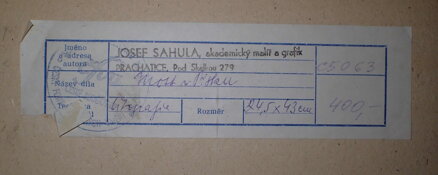 Jméno
a adresa
autora
JOSEF SAHULA, akademický malíř a grafik
PRACHATICE, Pod Skalkou 279
C5063
Název díla
Most
Te
litografie
Rozměr
24,5 x 43 cm
400,-